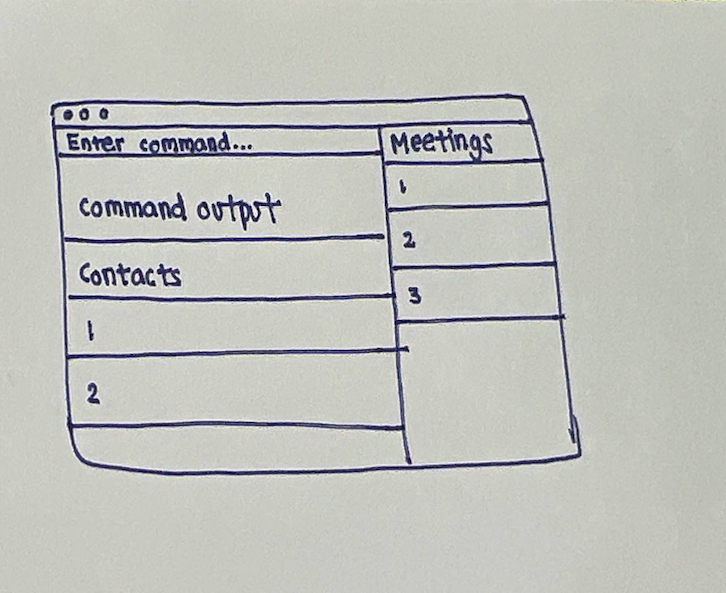 Enter command...
Command output
Contacts
1
2
Meetings
1
2
3